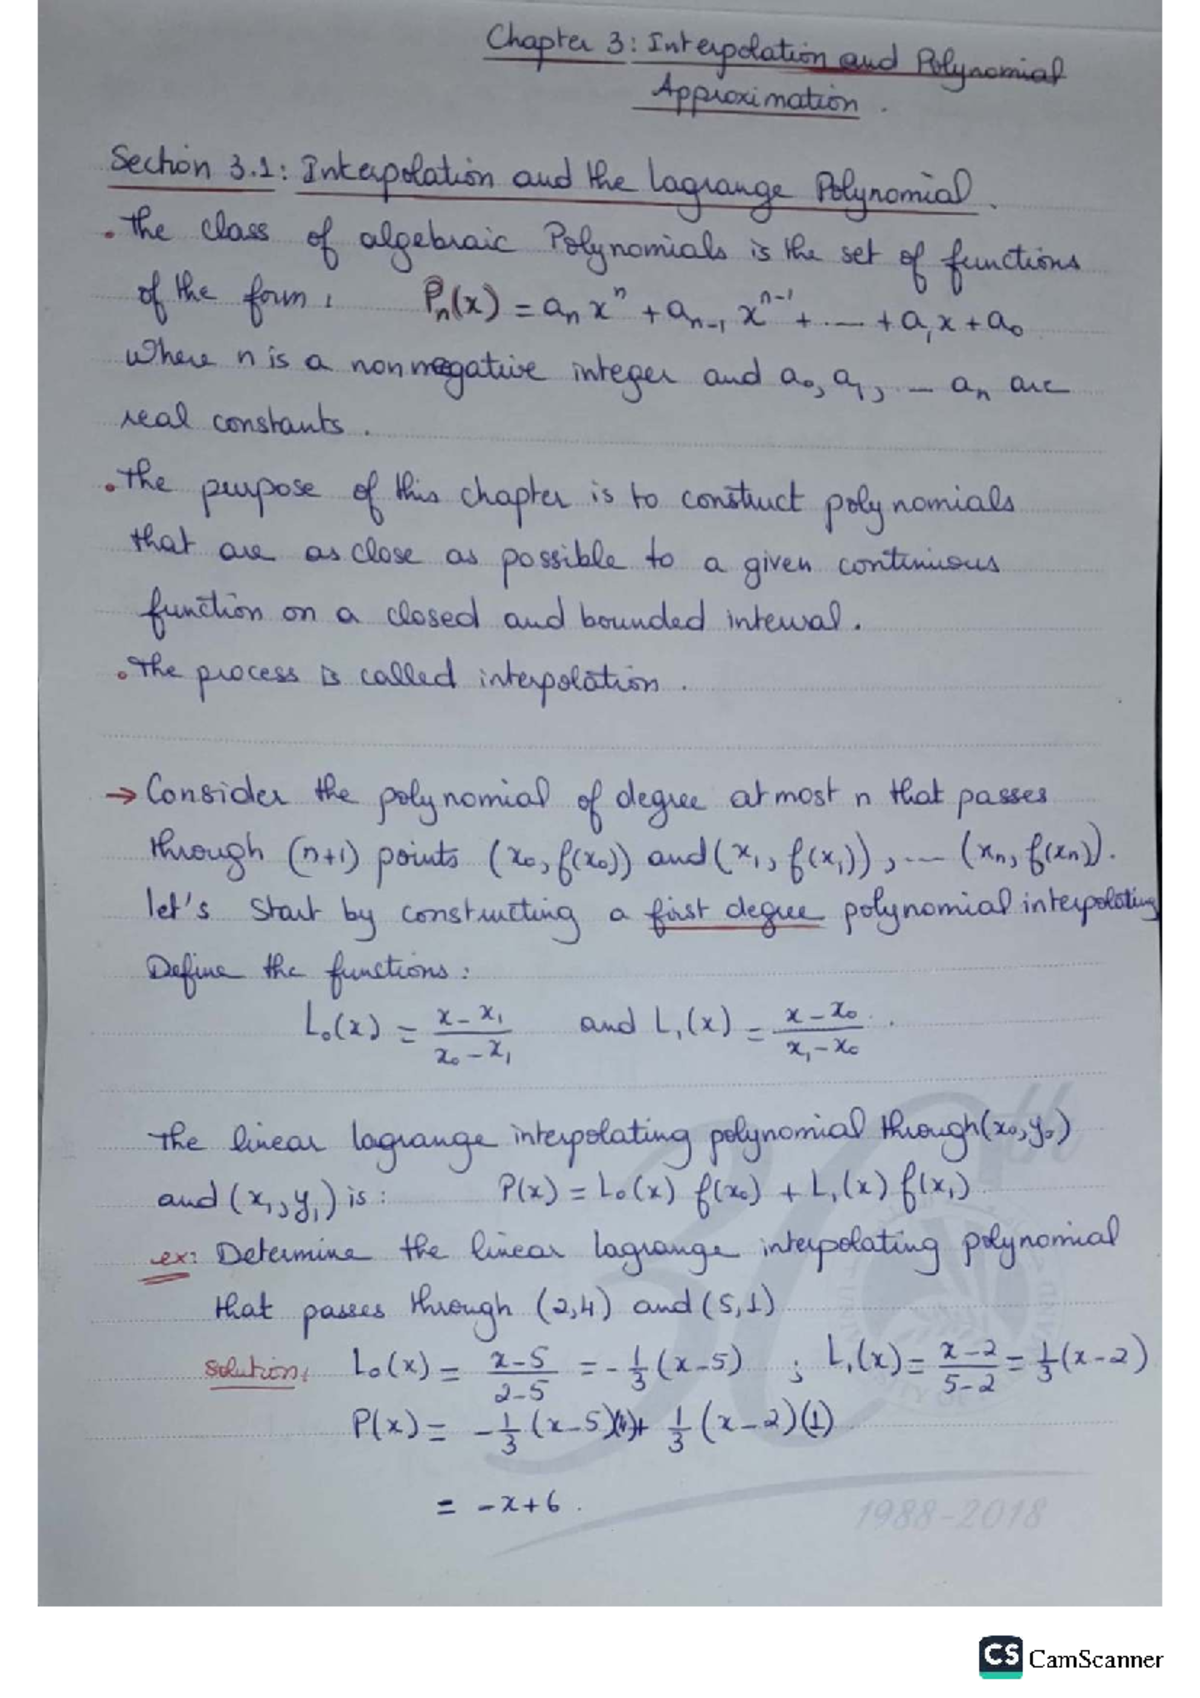 Chapter 3: Interpolation and Polynomial
Approximation.
Section 3.1: Interpolation and the Lagrange Polynomial.
• The class of algebraic Polynomials is the set of functions
of the form: Pₙ(x) = aₙxⁿ + aₙ₋₁xⁿ⁻¹ + .... + a₁x + a₀
where n is a nonnegative integer and a₀, a₁, ... aₙ are
real constants.
• The purpose of this chapter is to construct polynomials
that are as close as possible to a given continuous
function on a closed and bounded interval.
• The process is called interpolation.
→ Consider the polynomial of degree at most n that passes
through (n+1) points (x₀, f(x₀)) and (x₁, f(x₁)), ... (xₙ, f(xₙ)).
let's start by constructing a first degree polynomial interpolating
Define the functions:
L₀(x) = (x - x₁)/(x₀ - x₁) and L₁(x) = (x - x₀)/(x₁ - x₀).
The linear lagrange interpolating polynomial through (x₀, y₀)
and (x₁, y₁) is: P(x) = L₀(x) f(x₀) + L₁(x) f(x₁)
ex: Determine the linear lagrange interpolating polynomial
that passes through (2,4) and (5,1)
solution: L₀(x) = (x-5)/(2-5) = -1/3 (x-5) ; L₁(x) = (x-2)/(5-2) = 1/3 (x-2)
P(x) = -1/3 (x-5)(4) + 1/3 (x-2)(1)
= -x+6.
30th
1988-2018
CS CamScanner